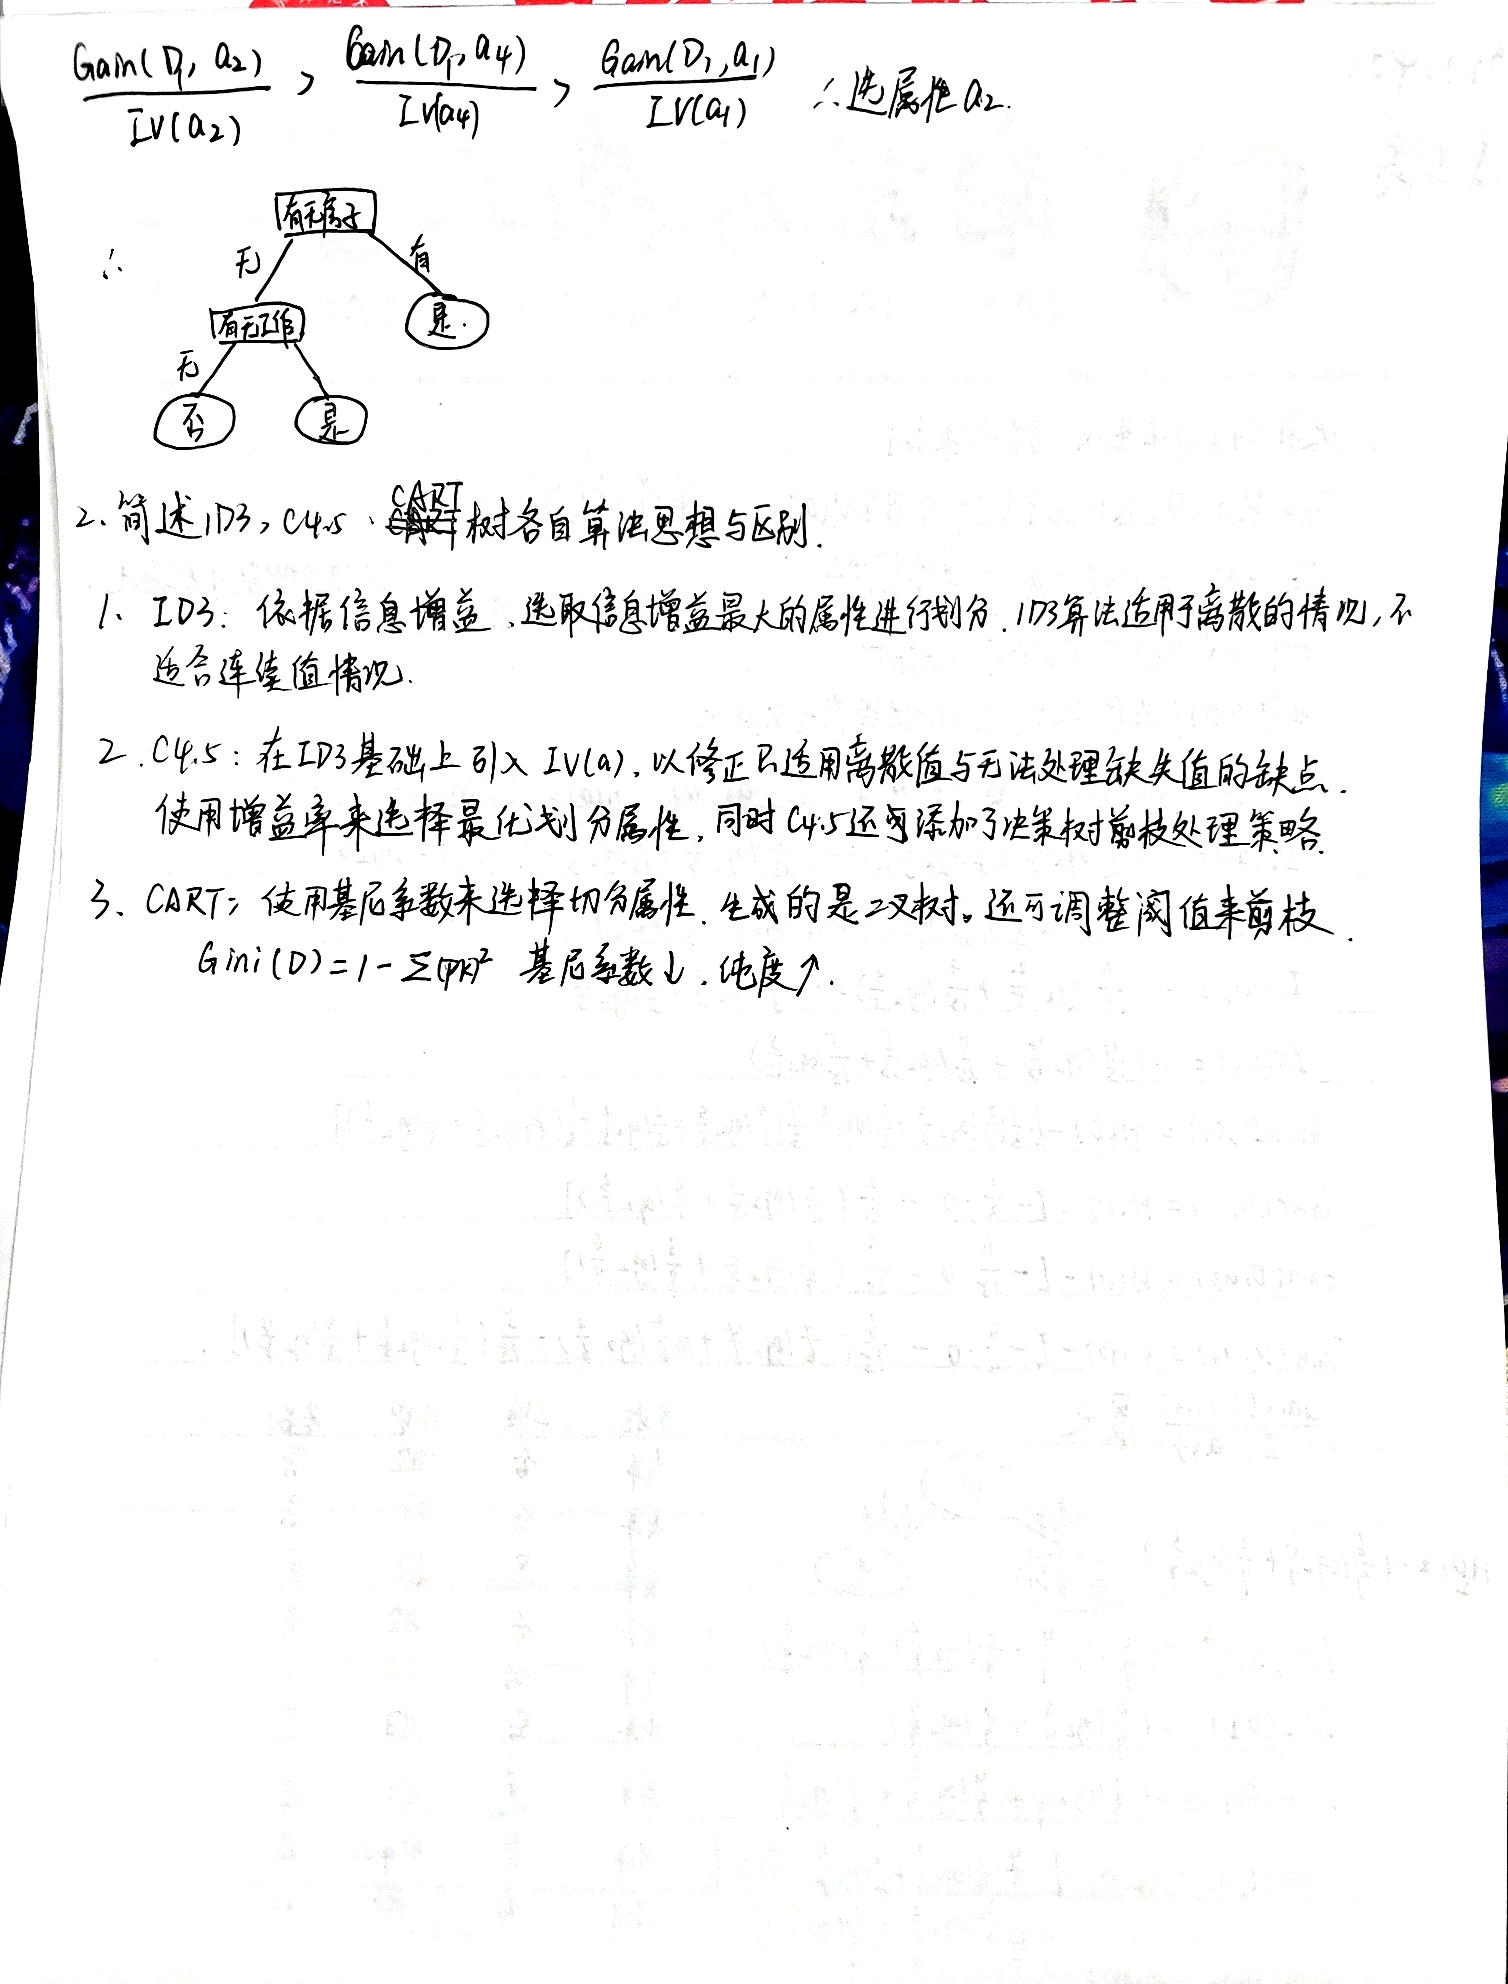 Gain(D₁, a₂)/IV(a₂) > Gain(D₁, a₄)/IV(a₄) > Gain(D₁, a₁)/IV(a₁) ∴选属性a₂.
有无房子
∴ 无 有
有无工作 是.
无
否 是
2、简述ID3, C4.5、CART树各自算法思想与区别.
1、ID3: 依据信息增益、选取信息增益最大的属性进行划分. ID3算法适用于离散的情况, 不
适合连续值情况.
2. C4.5: 在ID3基础上引入 IV(a), 以修正只适用离散值与无法处理缺失值的缺点.
使用增益率来选择最优划分属性, 同时C4.5还添加了决策树剪枝处理策略.
3、CART: 使用基尼系数来选择切分属性. 生成的是二叉树。还可调整阈值来剪枝.
Gini(D)=1-Σ(pk)² 基尼系数↓. 纯度↑.